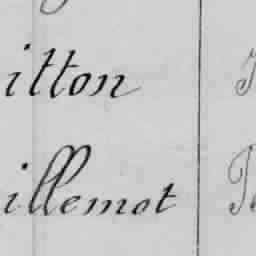 itton
illemot